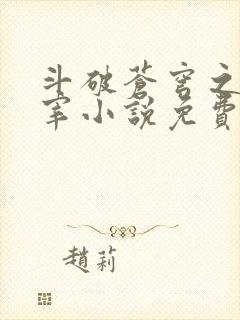 斗破蒼穹之
宰小說免費
趙莉